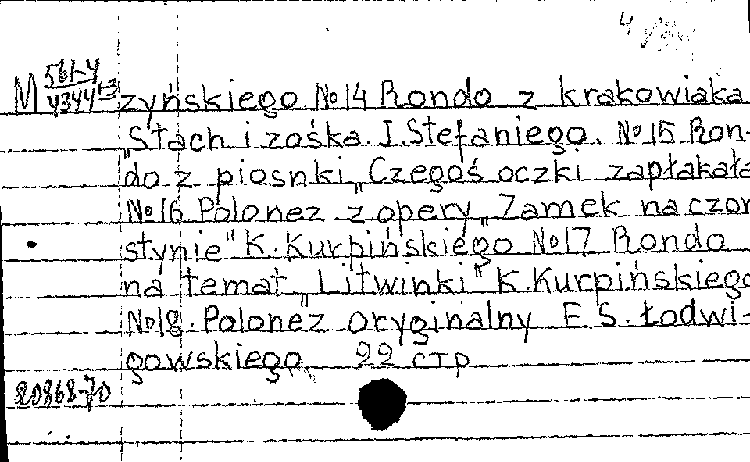 4
М 561-4
4344 1-3
zyńskiego №14 Rondo z krakowiaka
„Stach i zośka. J. Stefaniego. №15 Ron-
do z piosnki „Czegoś oczki zapłakała
№16 Polonez z opery „Zamek na czor
stynie" K. Kurpińskiego №17 Rondo
na temat „Litwinki" K. Kurpińskiego
№18. Polonez oryginalny E. S. Łodwi-
gowskiego 22 стр
20868-70